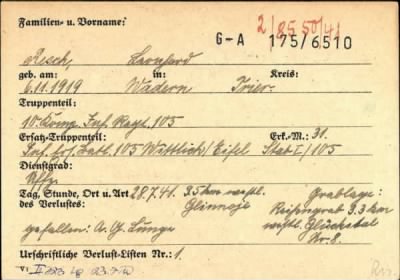 Familien- u. Vorname:
G-A 175/6510 2/8550/41
Resch, Leonhard
geb. am: in: Kreis:
6.11.1919 Wadern Trier.
Truppenteil:
10. Komp. Inf. Regt. 105
Ersatz-Truppenteil: Erk.-M.: 31.
Inf. Ers. Batl. 105 Wittlich/Eifel Stab I/105
Dienstgrad:
Uffz.
Tag, Stunde, Ort u. Art 28.7.41. 35 km westl. Grablage:
des Verlustes: Glinnoje Reihengrab 3.3 km
gefallen: A. G. Lunge westl.
Nr. 8.
Urschriftliche Verlust-Listen Nr.: 1.